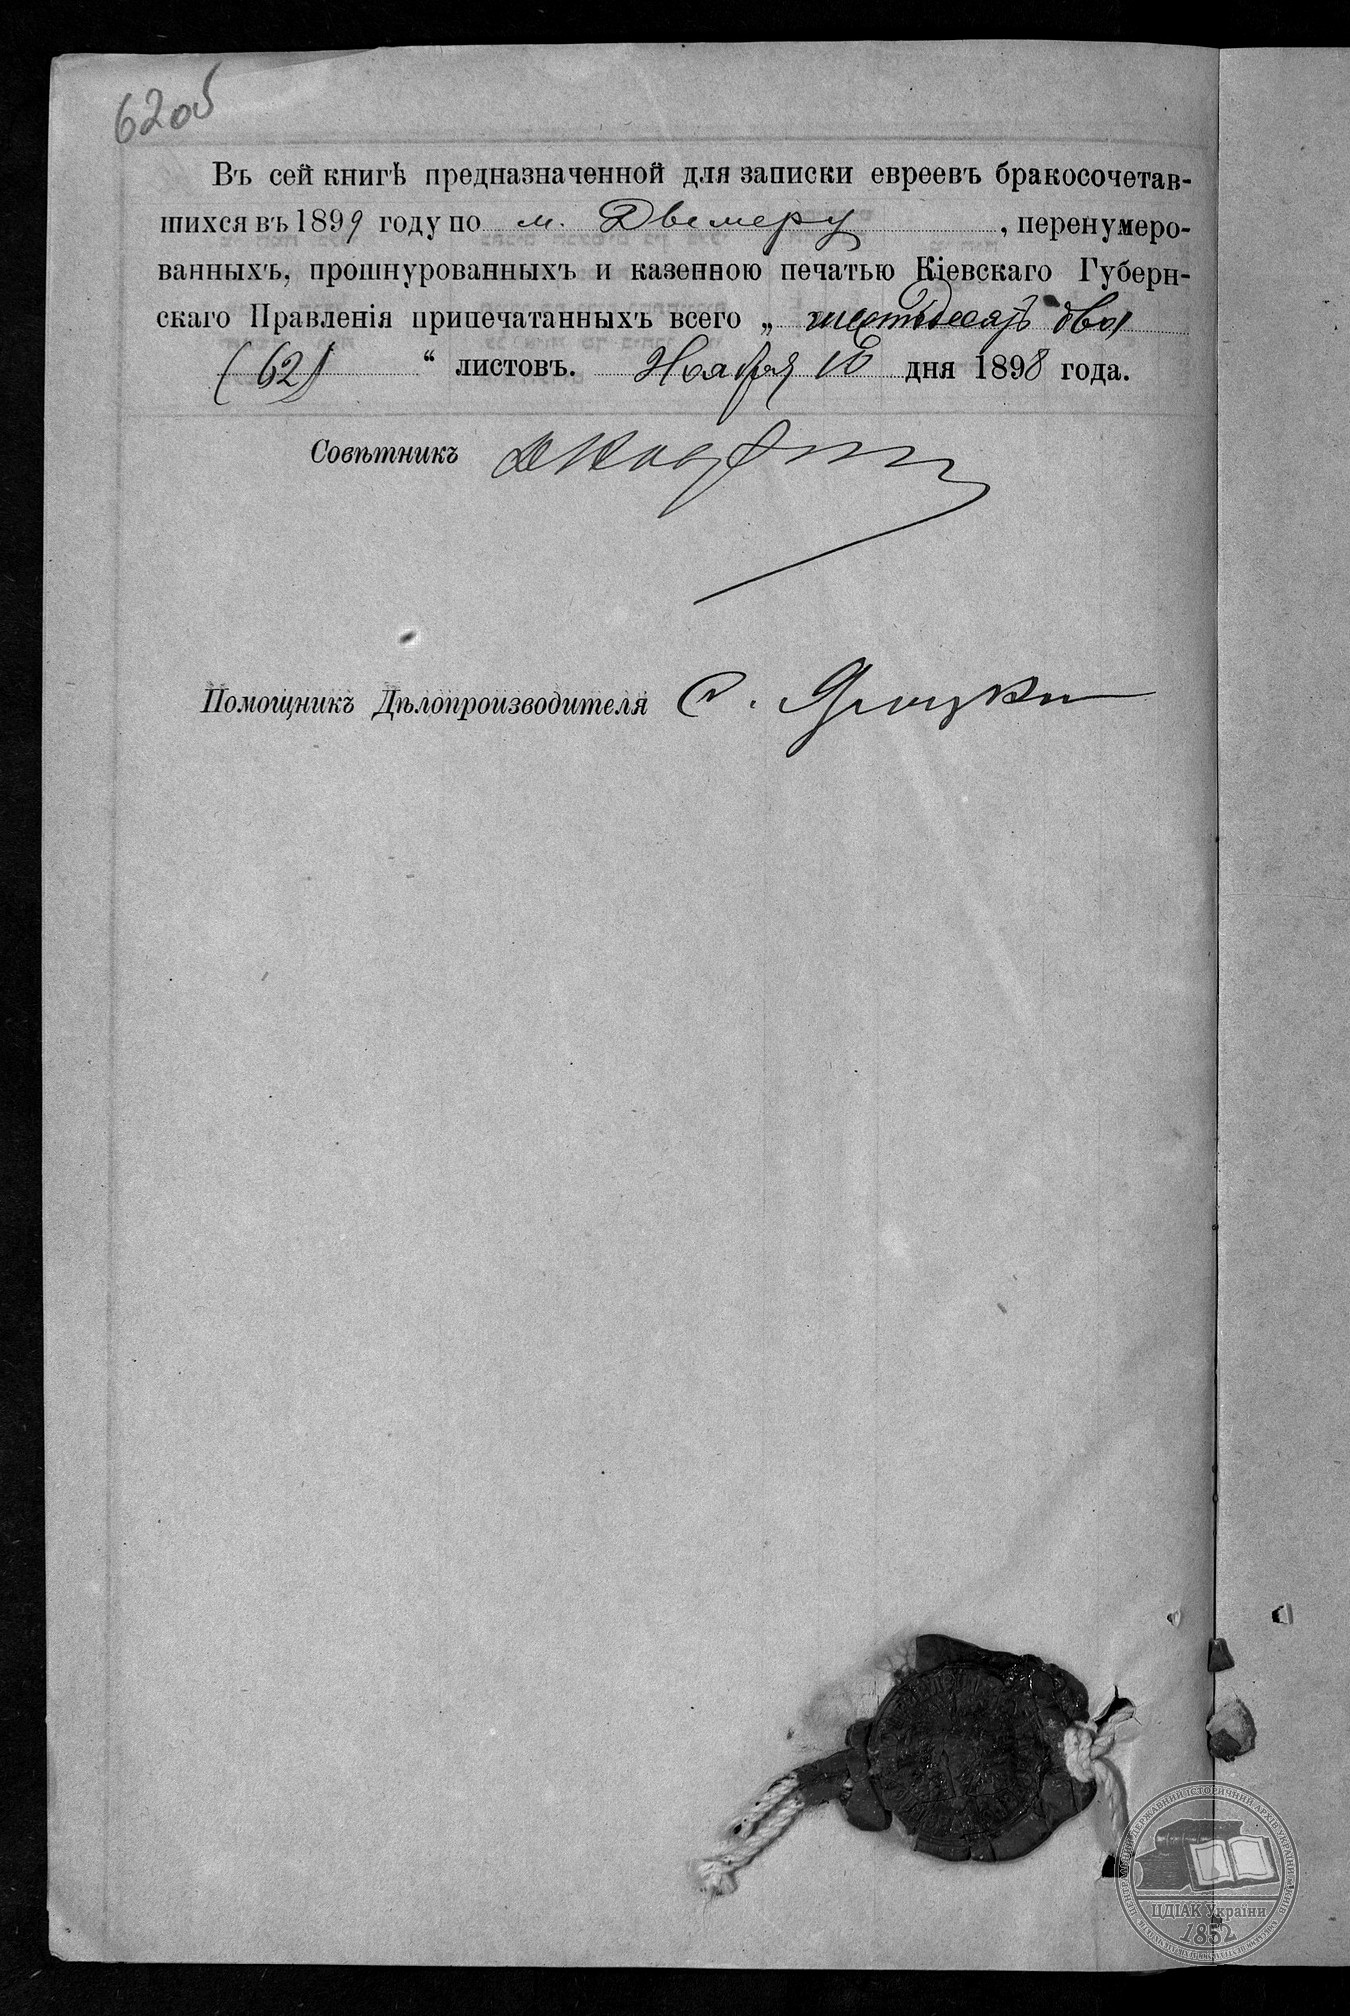 62об
Въ сей книгѣ предназначенной для записки евреевъ бракосочетав-
шихся въ 1899 году по м. Дымеру, перенумеро-
ванныхъ, прошнурованныхъ и казенною печатью Кіевскаго Губерн-
скаго Правленія припечатанныхъ всего „ шестьдесятъ два
(62) “ листовъ. Ноября 10 дня 1898 года.
Совѣтникъ
Помощникъ Дѣлопроизводителя
ЦЕНТРАЛЬНИЙ ДЕРЖАВНИЙ ІСТОРИЧНИЙ АРХІВ УКРАЇНИ, М. КИЇВ
ЦДІАК України
1852